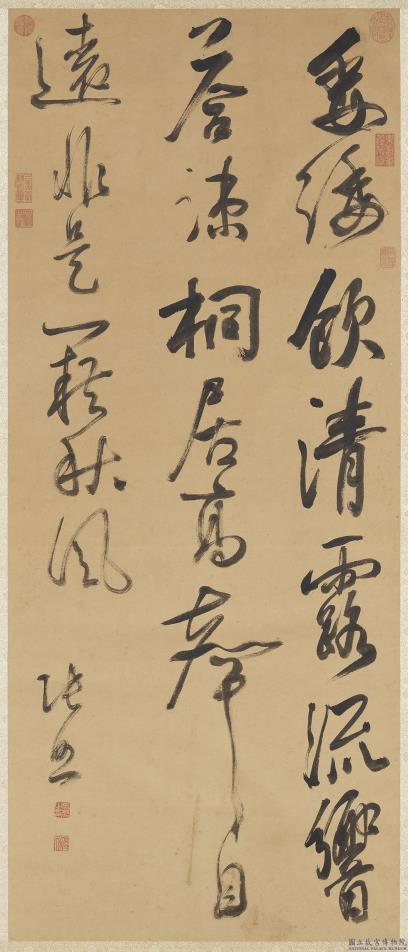 垂緌飲清露流響
荅疎桐居高聲自
遠非是藉秋風
張照
國立故宮博物院
NATIONAL PALACE MUSEUM